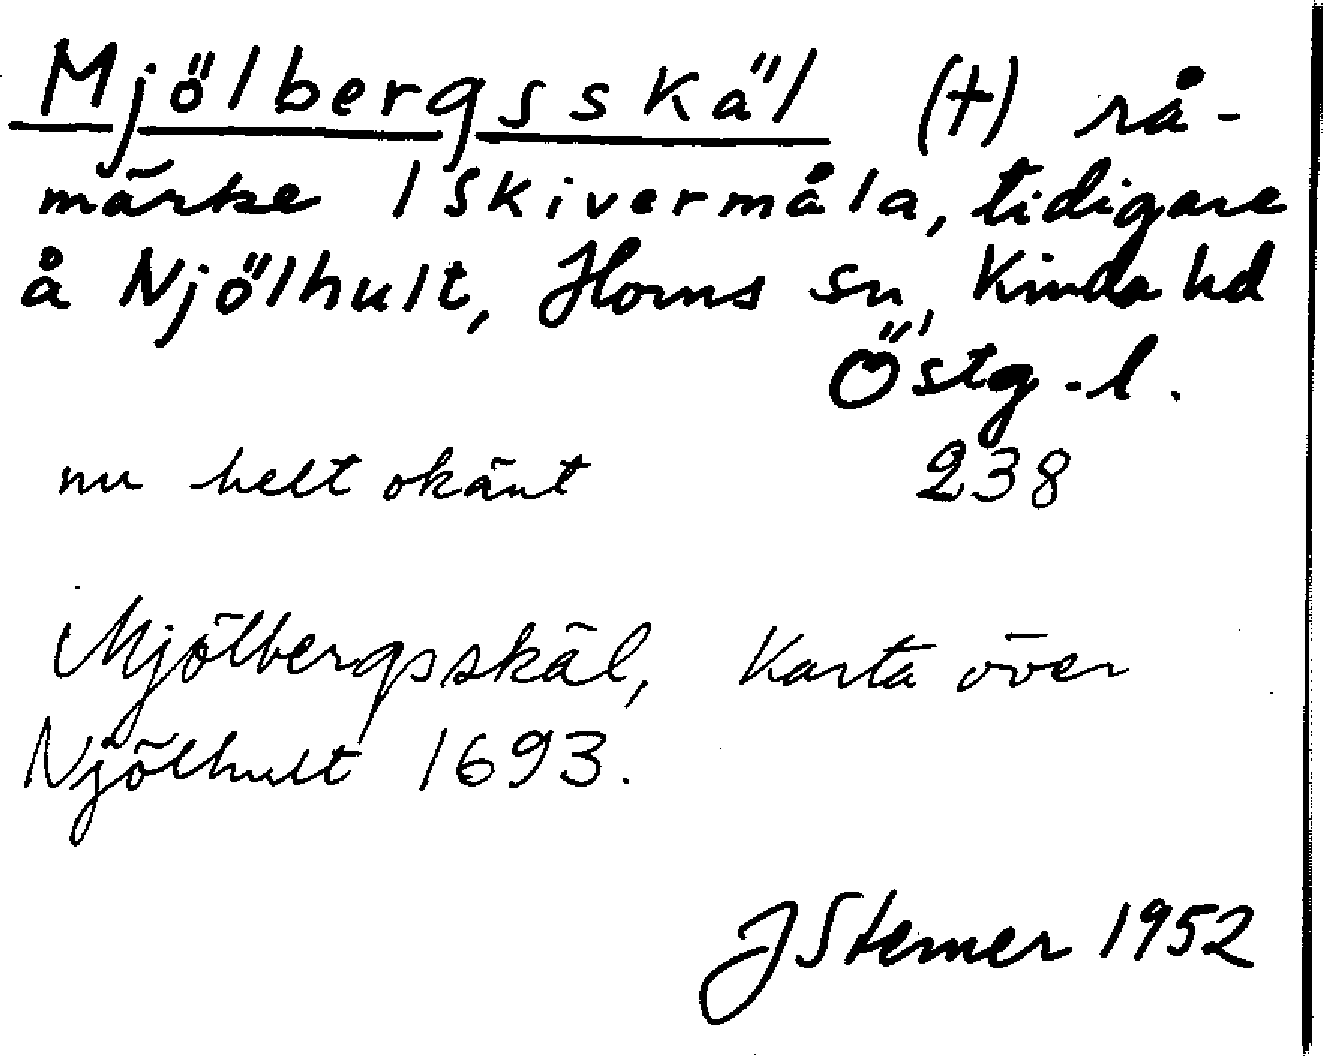 Mjölbergsskäl (†) rå-
märke 1 Skivermåla, tidigare
å Njölhult, Horns sn, Kinda hd
Östg.l.
nu helt okänt 238
Mjölbergsskäl, Karta över
Njölhult 1693.
J Sterner 1952